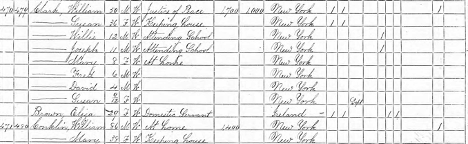 Clark, William 50 M W Justice of Peace 1700 1000 New York 1 1 1
Susan 36 F W Keeping House New York 1 1
Willis 12 M W Attending School New York 1
Joseph 11 M W Attending School New York 1
Mary 8 F W At Home New York
6 M W New York
David 4 M W New York
Susan F W New York Sept
Brown, Eliza 29 F W Domestic Servant Ireland 1 1 1 1
Conklin William 56 M W At home 1400 New York 1
F W Keeping House New York